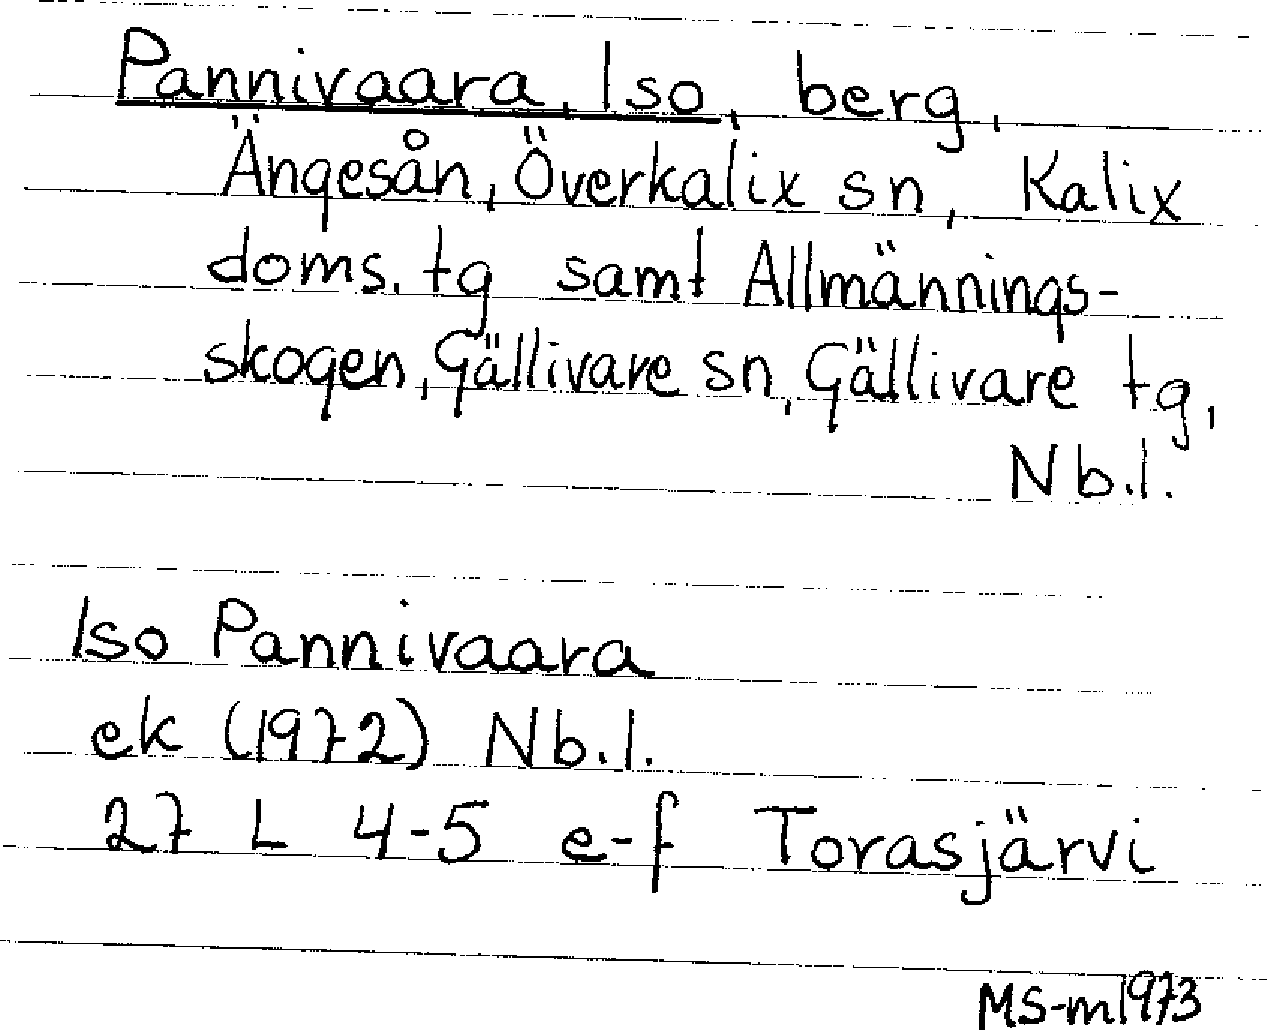 Pannivaara, Iso, berg,
Ängesån, Överkalix sn, Kalix
doms. tg samt Allmännings-
skogen, Gällivare sn, Gällivare tg,
Nb.l.
Iso Pannivaara
ek (1972) Nb.l.
27 L 4-5 e-f Torasjärvi
MS-m 1973